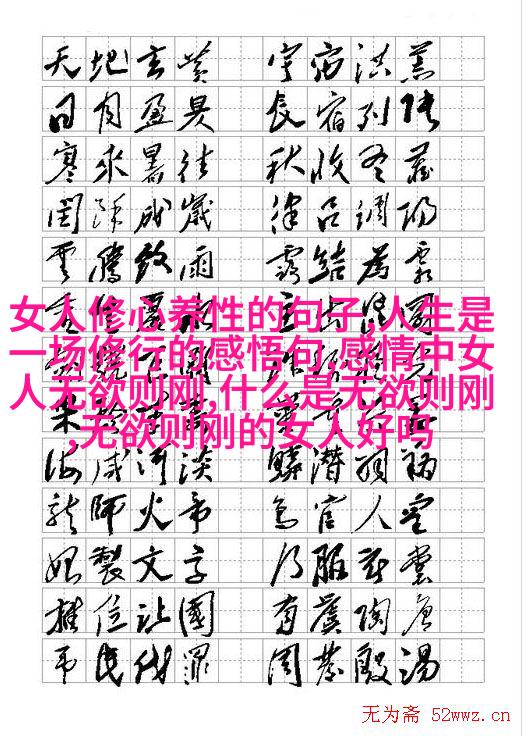 天地玄黄 宇宙洪荒
日月盈昃 辰宿列張
寒來暑往 秋收冬藏
閏餘成歲 律呂調陽
雲騰致雨 露結為霜
女人修心养性的句子,人生是
一场修行的感悟句,感情中女
人无欲则刚,什么是无欲则刚
,无欲则刚的女人好吗
海咸河淡 鱗潛羽翔
龍師火帝 鳥官人皇
始製文字 乃服衣裳
推位让國 有虞陶唐
弔民伐罪 周發殷湯
无为斋 52wwz.cn